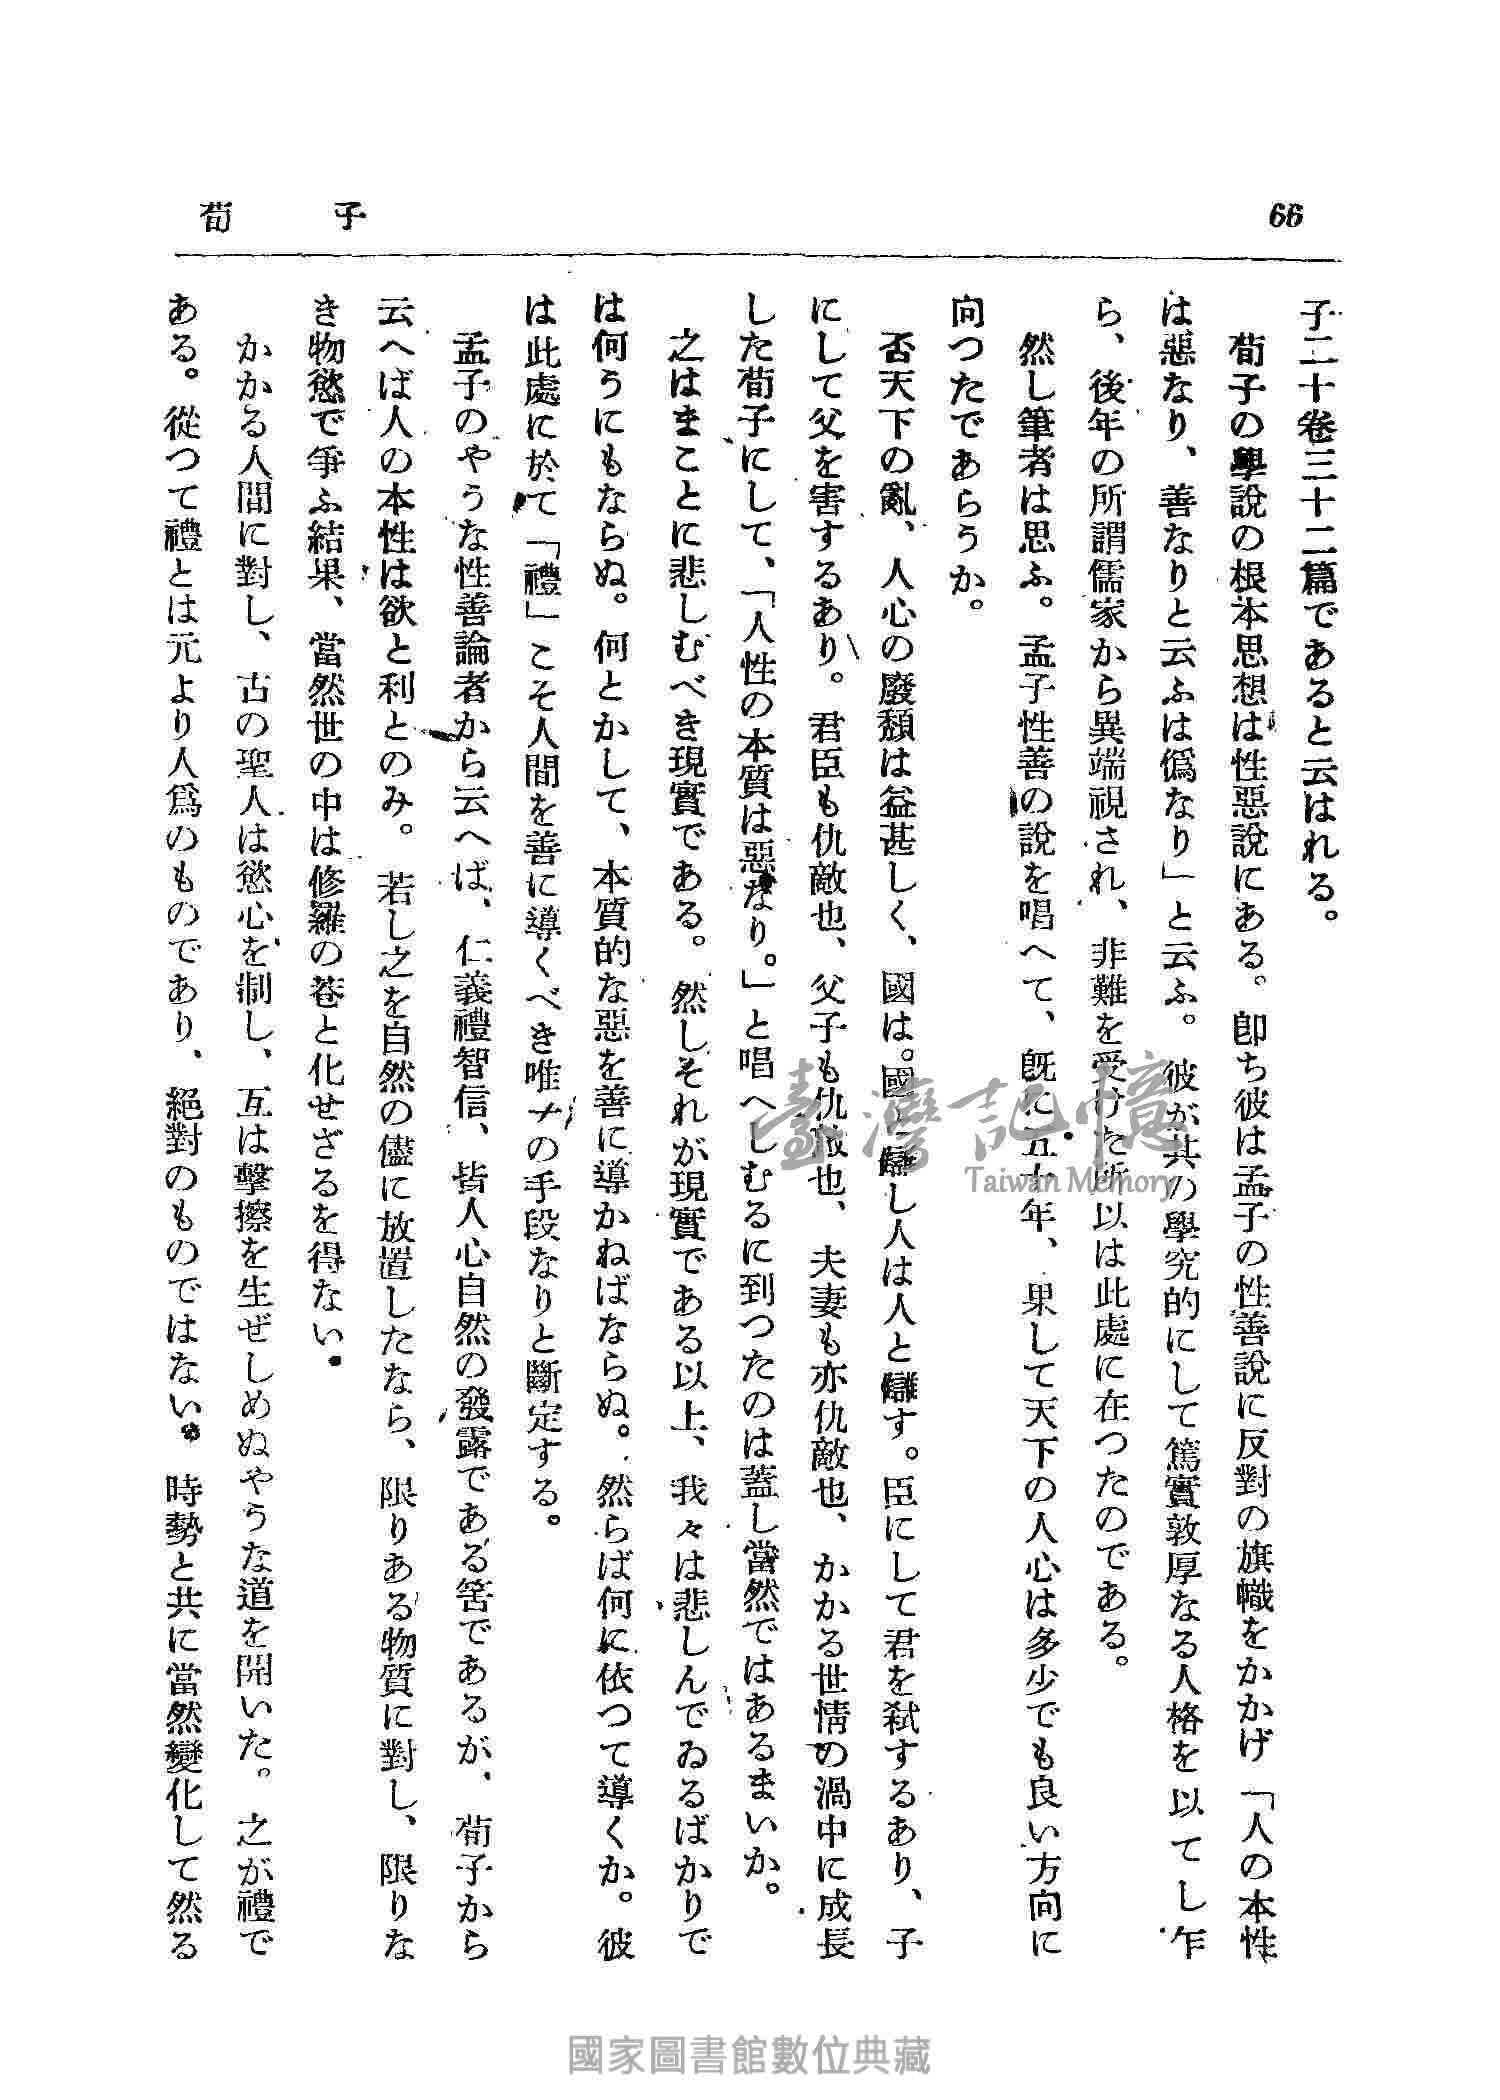 荀子
66
子二十卷三十二篇であると云はれる。
荀子の學說の根本思想は性惡說にある。卽ち彼は孟子の性善說に反對の旗幟をかかげ「人の本性
は惡なり、善なりと云ふは僞なり」と云ふ。彼が其の學究的にして篤實敦厚なる人格を以てし乍
ら、後年の所謂儒家から異端視され、非難を受けた所以は此處に在つたのである。
然し筆者は思ふ。孟子性善の說を唱へて、旣に五十年、果して天下の人心は多少でも良い方向に
向つたであらうか。
否天下の亂、人心の廢頽は益甚しく、國は。國と讎し人は人と讎す。臣にして君を弑するあり、子
にして父を害するあり。君臣も仇敵也、父子も仇敵也、夫妻も亦仇敵也、かかる世情の渦中に成長
した荀子にして、「人性の本質は惡なり。」と唱へしむるに到つたのは蓋し當然ではあるまいか。
之はまことに悲しむべき現實である。然しそれが現實である以上、我々は悲しんでゐるばかりで
は何うにもならぬ。何とかして、本質的な惡を善に導かねばならぬ。然らば何に依つて導くか。彼
は此處に於て「禮」こそ人間を善に導くべき唯一の手段なりと斷定する。
孟子のやうな性善論者から云へば、仁義禮智信、皆人心自然の發露である筈であるが、荀子から
云へば人の本性は欲と利とのみ。若し之を自然の儘に放置したなら、限りある物質に對し、限りな
き物慾で爭ふ結果、當然世の中は修羅の巷と化せざるを得ない。
かかる人間に對し、古の聖人は慾心を制し、互は擊擦を生ぜしめぬやうな道を開いた。之が禮で
ある。從つて禮とは元より人爲のものであり、絕對のものではない。時勢と共に當然變化して然る
臺灣記憶
Taiwan Memory
國家圖書館數位典藏